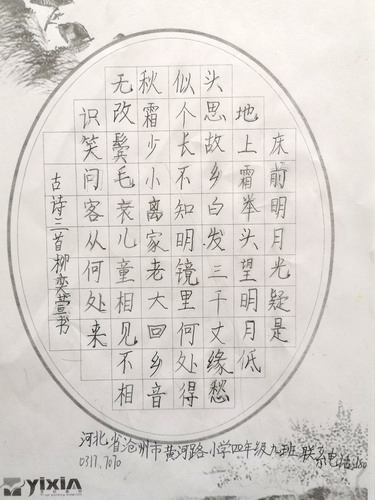 床前明月光疑是
地上霜举头望明月低
头思故乡白发三千丈缘愁
似个长不知明镜里何处得
秋霜少小离家老大回乡音
无改鬓毛衰儿童相见不相
识笑问客从何处来
古诗三首柳奕萱书
河北省沧州市黄河路小学四年级九班 联系电话
0317.7070
YIXIA